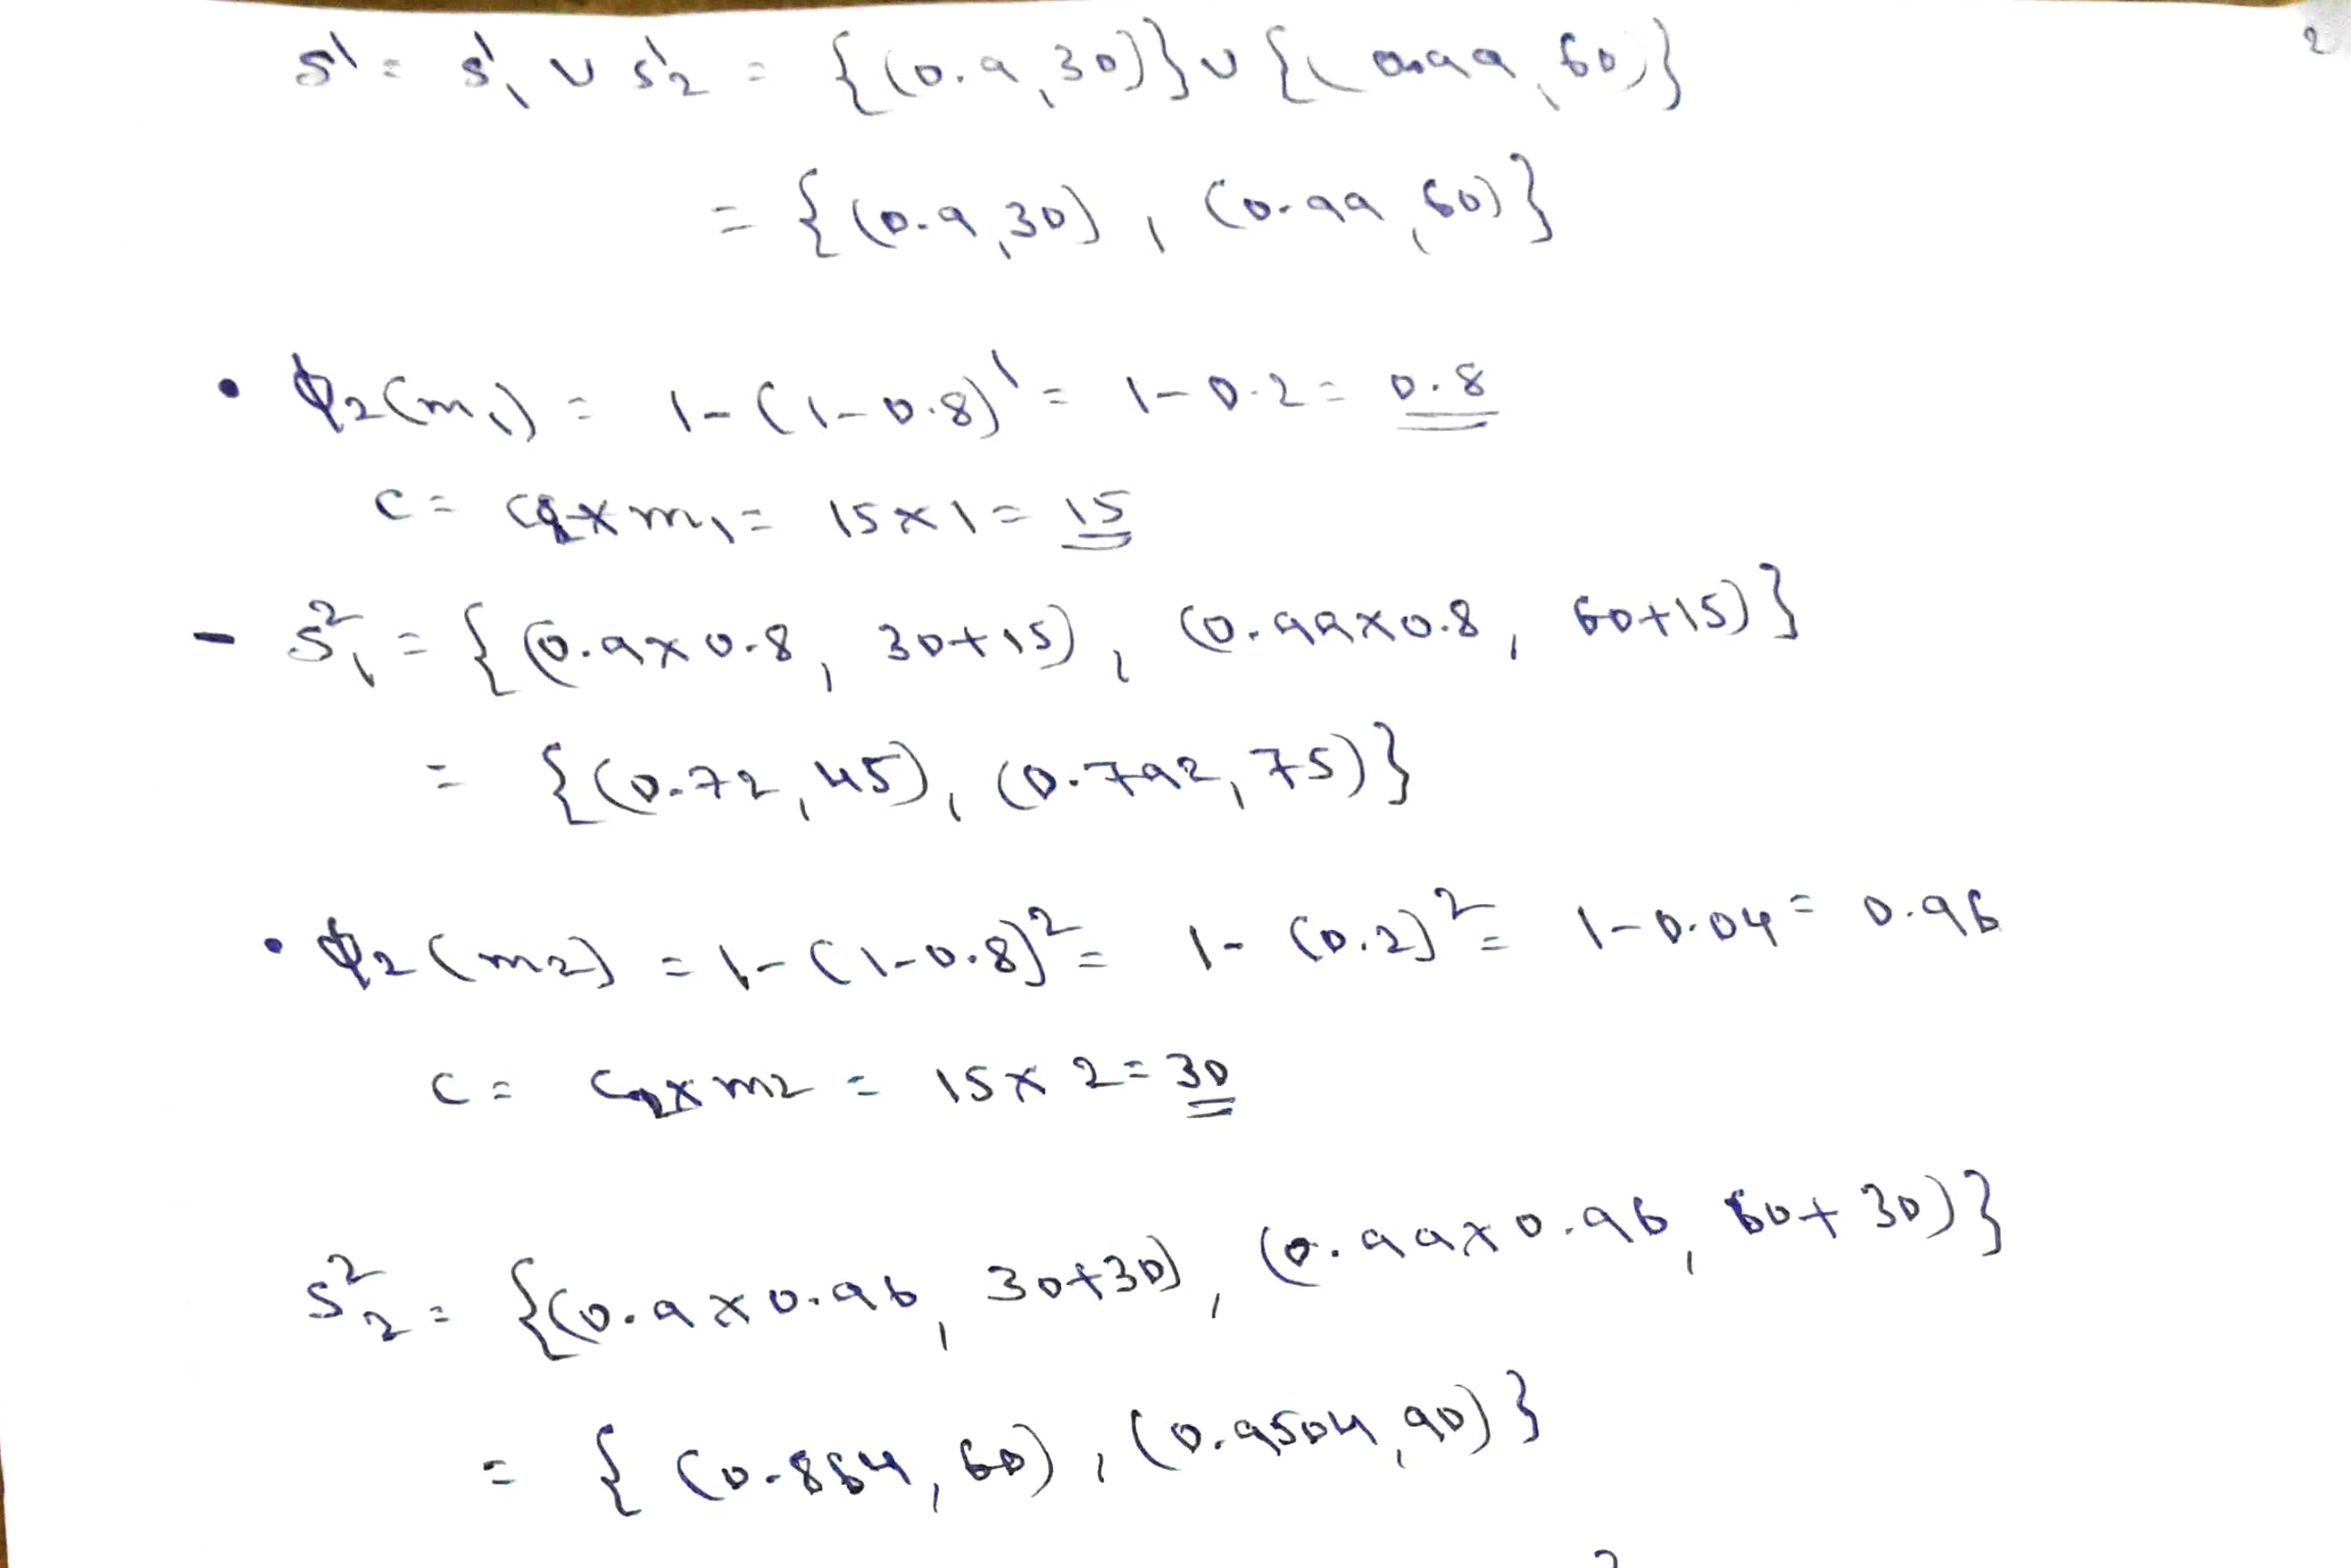 2
S¹ = S¹₁ ∪ S¹₂ = {(0.9,30)} ∪ {(0.99,60)}
= {(0.9,30), (0.99,60)}
• ϕ₂(m₁) = 1-(1-0.8)¹ = 1-0.2 = 0.8
C = C₂×m₁ = 15×1 = 15
- S²₁ = {(0.9×0.8, 30+15), (0.99×0.8, 60+15)}
= {(0.72,45), (0.792,75)}
• ϕ₂(m₂) = 1-(1-0.8)² = 1-(0.2)² = 1-0.04 = 0.96
C = C₂×m₂ = 15×2 = 30
S²₂ = {(0.9×0.96, 30+30), (0.99×0.96, 60+30)}
= {(0.864,60), (0.9504,90)}